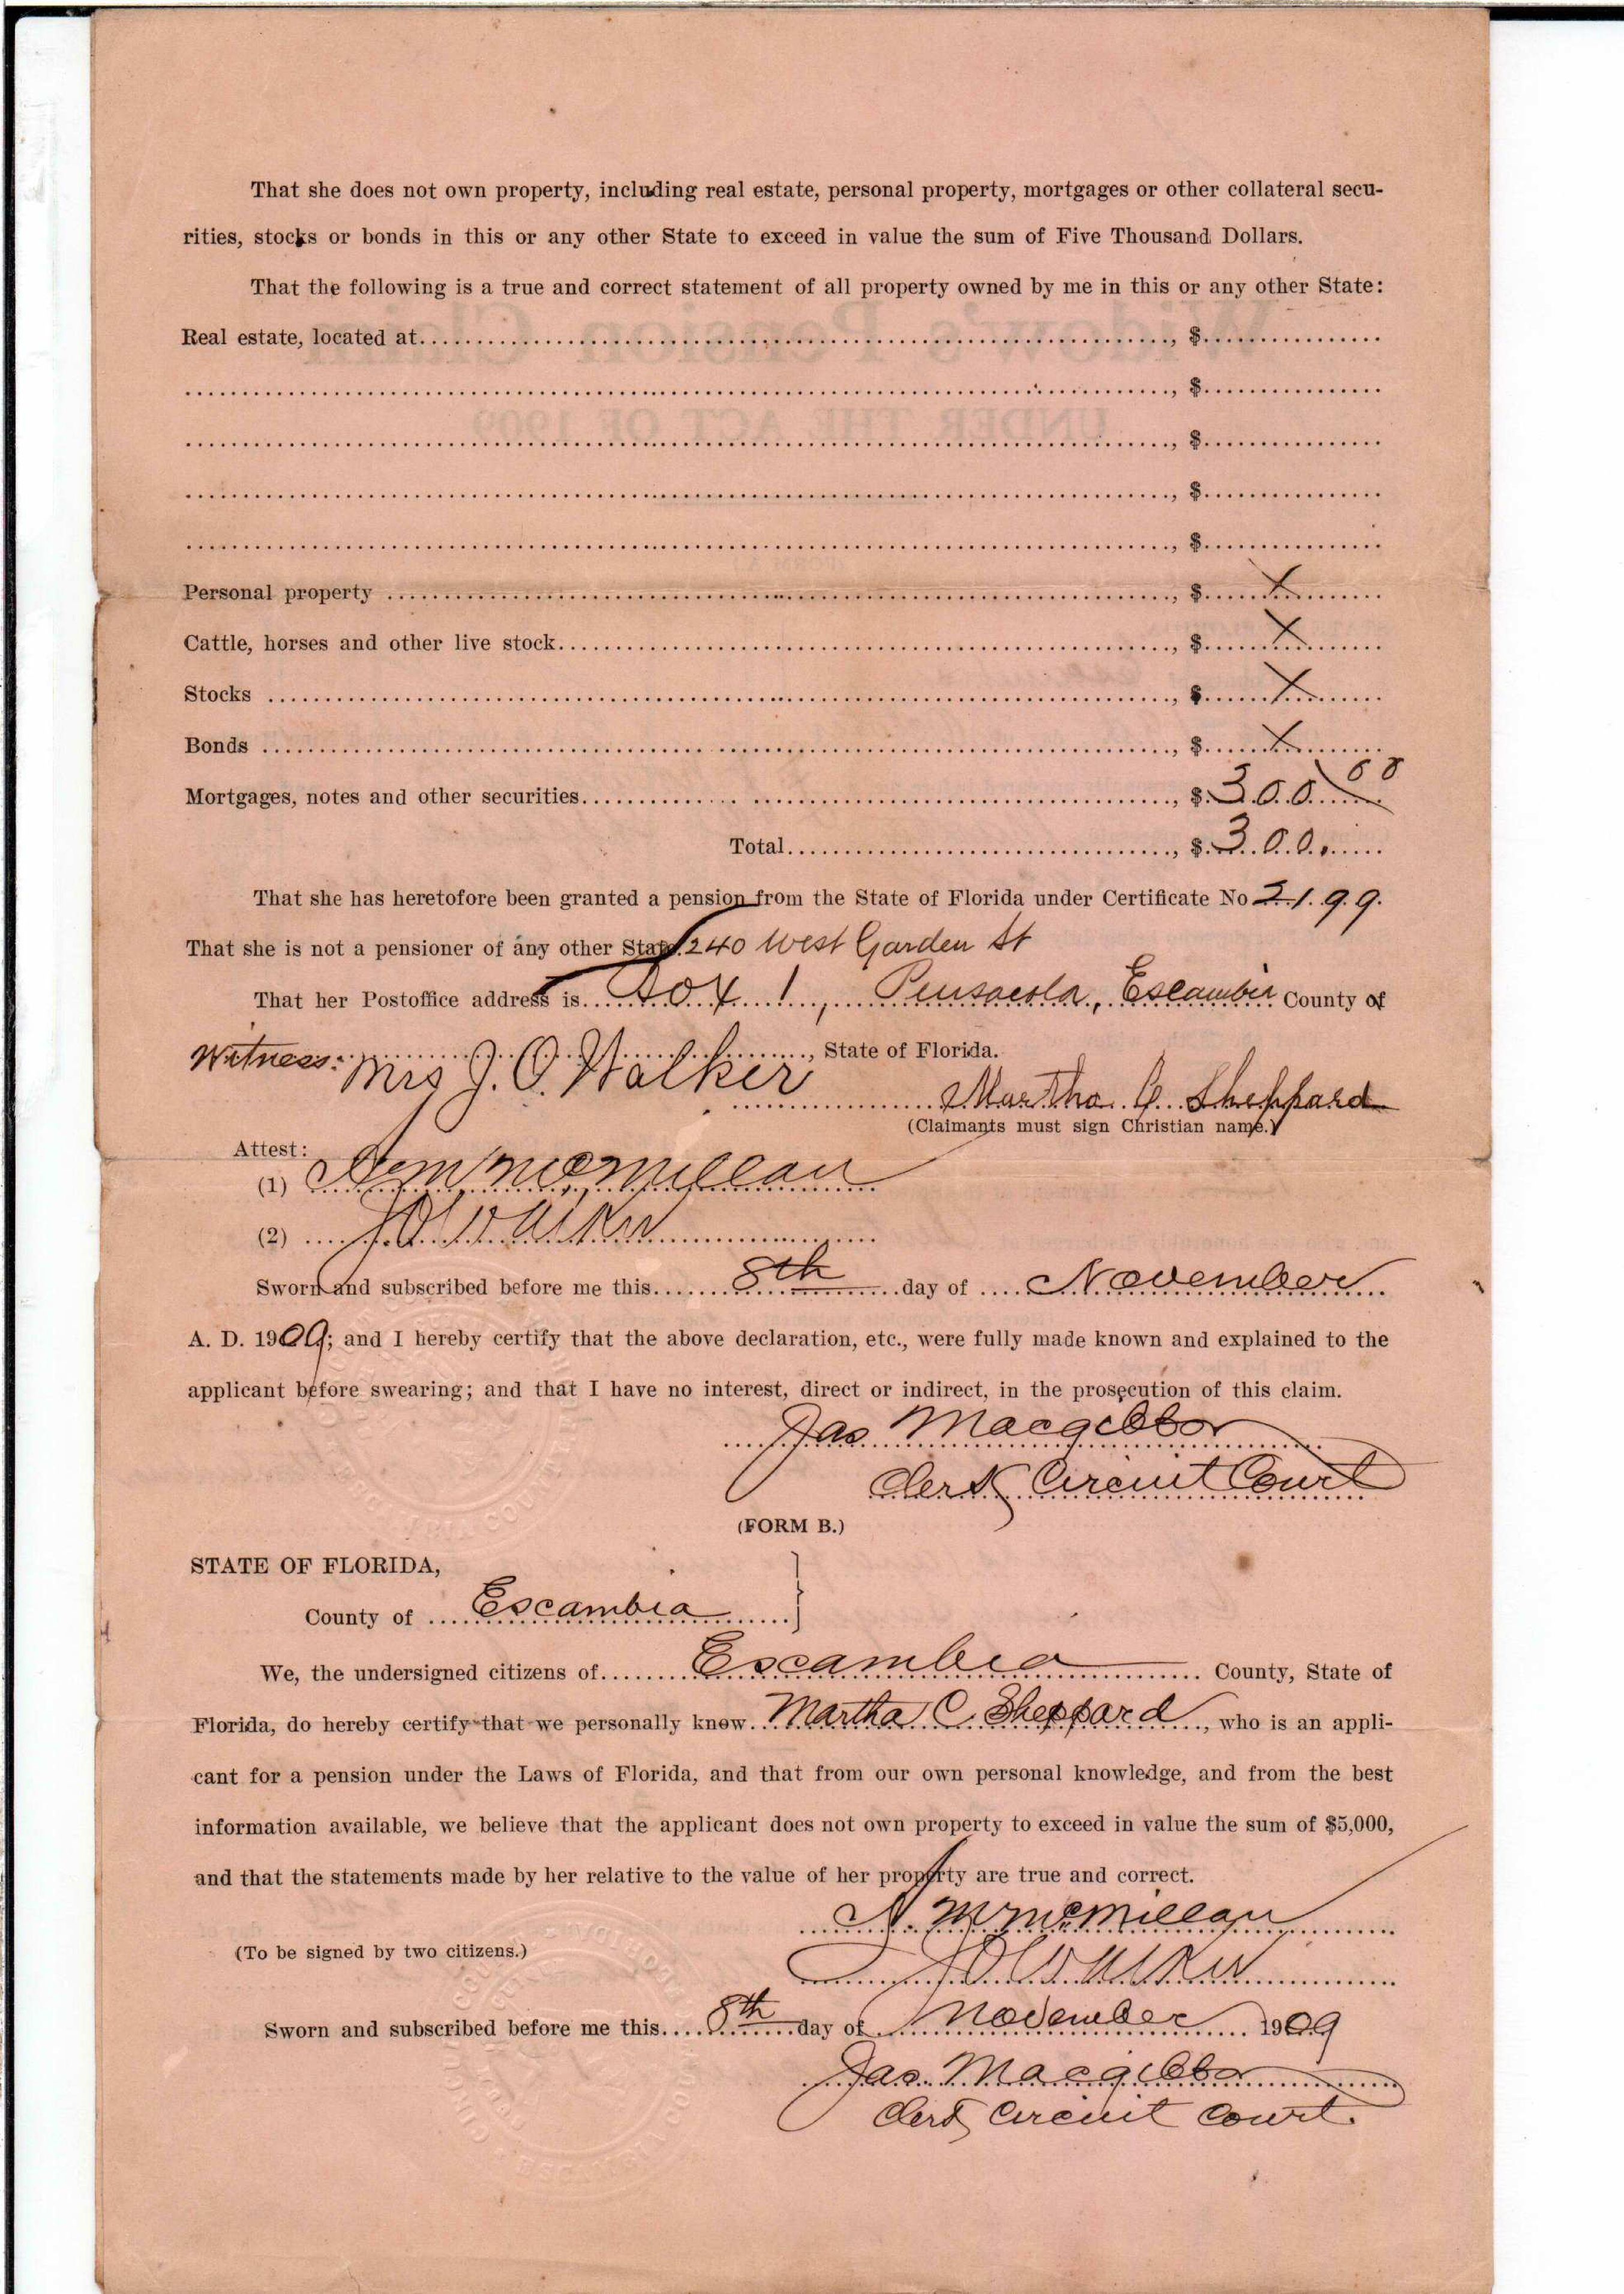 That she does not own property, including real estate, personal property, mortgages or other collateral secu-
rities, stocks or bonds in this or any other State to exceed in value the sum of Five Thousand Dollars.
That the following is a true and correct statement of all property owned by me in this or any other State:
Real estate, located at........, $........
........, $........
........, $........
........, $........
........, $........
Personal property ........, $....X....
Cattle, horses and other live stock........, $....X....
Stocks ........, $....X....
Bonds ........, $....X....
Mortgages, notes and other securities........, $300 00
Total........, $300.
That she has heretofore been granted a pension from the State of Florida under Certificate No 2199.
That she is not a pensioner of any other State. 240 West Garden St
That her Postoffice address is Box 1, Pensacola, Escambia County of
Witness: ........, State of Florida.
Mrs J. O. Walker
Martha C. Sheppard
(Claimants must sign Christian name.)
Attest:
(1) McMillan
(2) J O Walker
Sworn and subscribed before me this 8th day of November
A. D. 1909; and I hereby certify that the above declaration, etc., were fully made known and explained to the
applicant before swearing; and that I have no interest, direct or indirect, in the prosecution of this claim.
Jas Macgibbon
Clerk Circuit Court
(FORM B.)
STATE OF FLORIDA,
County of Escambia
We, the undersigned citizens of Escambia County, State of
Florida, do hereby certify that we personally know Martha C. Sheppard, who is an appli-
cant for a pension under the Laws of Florida, and that from our own personal knowledge, and from the best
information available, we believe that the applicant does not own property to exceed in value the sum of $5,000,
and that the statements made by her relative to the value of her property are true and correct.
McMillan
(To be signed by two citizens.)
J O Walker
Sworn and subscribed before me this 8th day of November 1909
Jas. Macgibbon
Clerk Circuit Court.